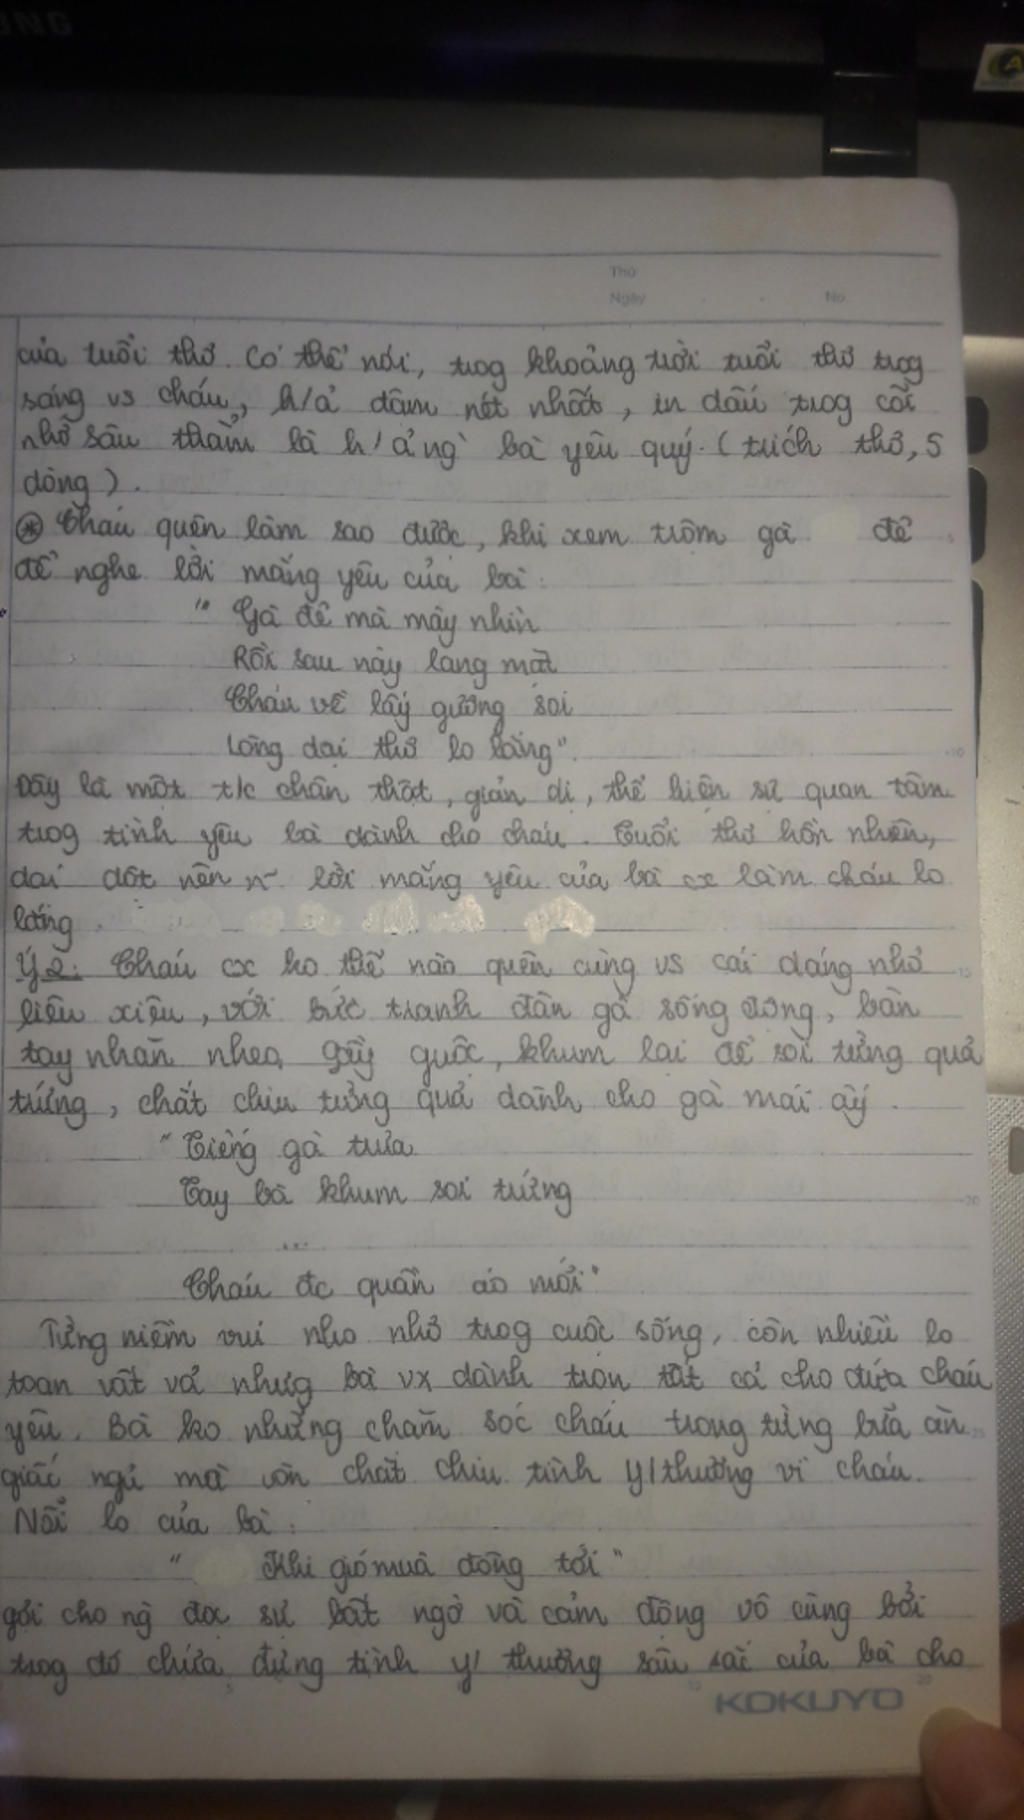 UNG
Thứ
Ngày . . No
của tuổi thơ. Có thể nói, trog khoảng trời tuổi thơ trog
sáng vs cháu, h/ả đậm nét nhất, in dấu trog cõi
nhớ sâu thẳm là h/ả ng` bà yêu quý. (trích thơ, 5
dòng).
* Cháu quên làm sao được, khi xem trộm gà đẻ
để nghe lời mắng yêu của bà:
" Gà đẻ mà mày nhìn
Rồi sau này lang mặt
Cháu về lấy gương soi
Lòng dại thơ lo lắng".
Đây là một t/c chân thật, giản dị, thể hiện sự quan tâm
trog tình yêu bà dành cho cháu. Tuổi thơ hồn nhiên,
dại dột nên n~ lời mắng yêu của bà cx làm cháu lo
lắng.
Ý 2: Cháu cx ko thể nào quên cùng vs cái dáng nhỏ
liêu xiêu, với bức tranh đàn gà sống động, bàn
tay nhăn nheo, gầy guộc, khum lại để soi từng quả
trứng, chắt chiu từng quả dành cho gà mái ấy.
" Tiếng gà trưa
Tay bà khum soi trứng
...
Cháu đc quần áo mới"
Từng niềm vui nho nhỏ trog cuộc sống, còn nhiều lo
toan vất vả nhưg bà vx dành trọn tất cả cho đứa cháu
yêu. Bà ko những chăm sóc cháu trong từng bữa ăn
giấc ngủ mà còn chắt chiu tình y/thương vì cháu.
Nỗi lo của bà:
" Khi gió mùa đông tới "
gợi cho ng đọc sự bất ngờ và cảm động vô cùng bởi
trog đó chứa đựng tình y/ thương sâu sắc của bà cho
KOKUYO